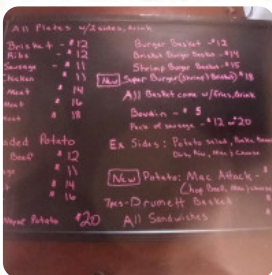 All Plates w/2 sides, drink
Brisket - $12
Ribs - $12
Sausage - $11
Chicken $11
Meat $14
Meat $16
Meat $18
Loaded Potato
Beef $12
$11
$14
$16
Potato $20
Burger Basket - $12
Brisket Burger Basket - $14
Shrimp Burger Basket - $15
New Super Burger (Shrimp & Brisket) $18
All Basket come w/Fries, Drink
Boudin - $5
Pack of sausage - $12 or $20
Ex Sides: Potato salad, Bake Beans
Dirty Rice, Mac & Cheese
New Potato: Mac Attack - $
(Chop Beef, Mac & cheese
7pcs - Drumett Basket $
All Sandwiches $